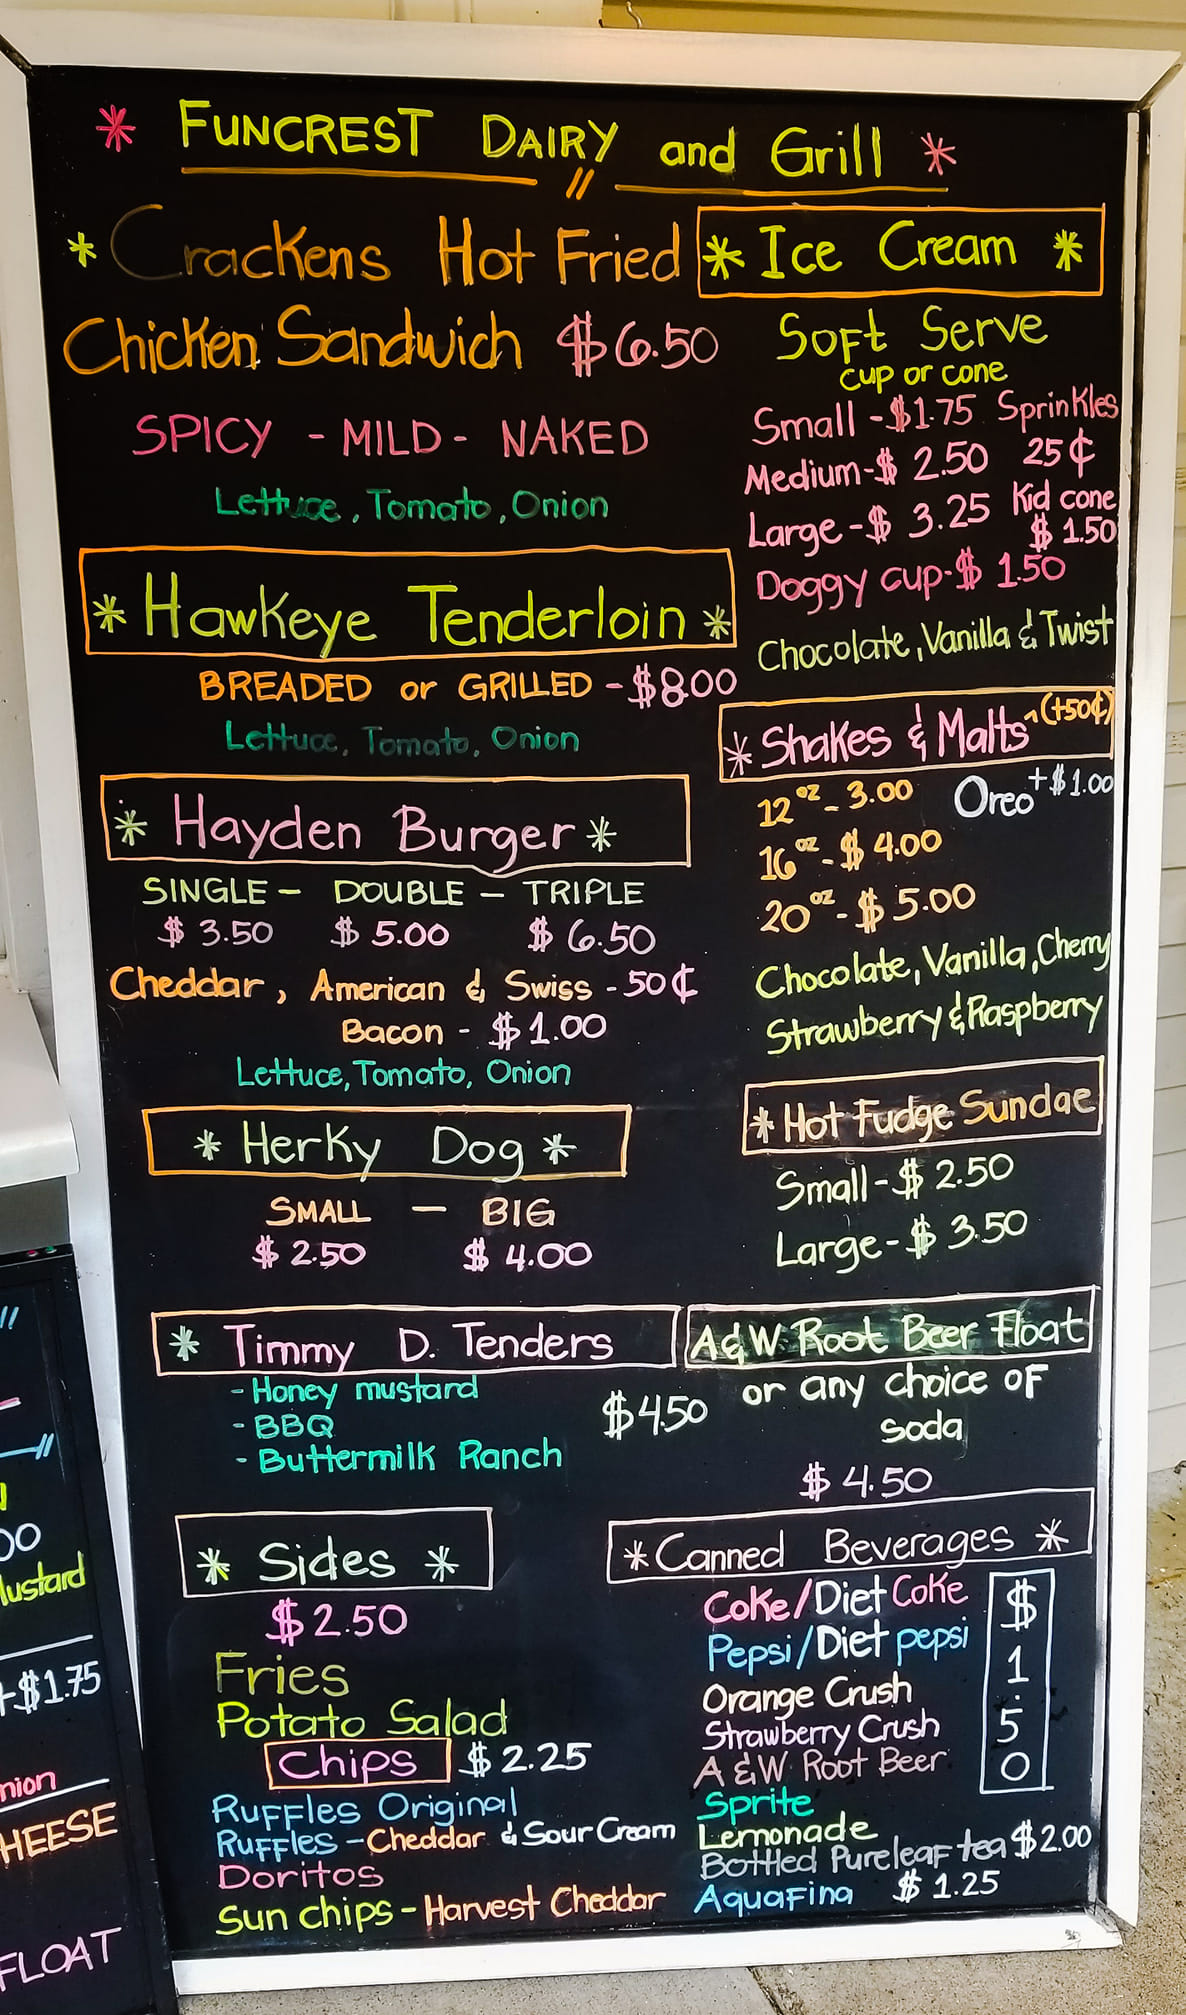 * FUNCREST DAIRY and Grill *
* Crackens Hot Fried
Chicken Sandwich $6.50
SPICY - MILD - NAKED
Lettuce, Tomato, Onion
* Hawkeye Tenderloin *
BREADED or GRILLED - $8.00
Lettuce, Tomato, Onion
* Hayden Burger *
SINGLE - DOUBLE - TRIPLE
$ 3.50 $ 5.00 $ 6.50
Cheddar, American & Swiss - 50¢
Bacon - $1.00
Lettuce, Tomato, Onion
* Herky Dog *
SMALL - BIG
$ 2.50 $ 4.00
* Timmy D. Tenders
- Honey mustard
- BBQ
- Buttermilk Ranch
$4.50
* Sides *
$2.50
Fries
Potato Salad
Chips $2.25
Ruffles Original
Ruffles - Cheddar & Sour Cream
Doritos
Sun chips - Harvest Cheddar
* Ice Cream *
Soft Serve
cup or cone
Small - $1.75 Sprinkles
Medium - $ 2.50 25¢
Large - $ 3.25 Kid cone
$ 1.50
Doggy cup - $ 1.50
Chocolate, Vanilla & Twist
* Shakes & Malts ^(+50¢)
12 oz - 3.00 Oreo +$1.00
16 oz - $ 4.00
20 oz - $ 5.00
Chocolate, Vanilla, Cherry
Strawberry & Raspberry
* Hot Fudge Sundae
Small - $ 2.50
Large - $ 3.50
A&W Root Beer Float
or any choice of
soda
$ 4.50
* Canned Beverages *
Coke/Diet Coke
Pepsi/Diet pepsi
Orange Crush
Strawberry Crush
A&W Root Beer
$1.50
Sprite
Lemonade
Bottled Pureleaf tea $2.00
Aquafina $ 1.25
00
+$1.75
HEESE
FLOAT